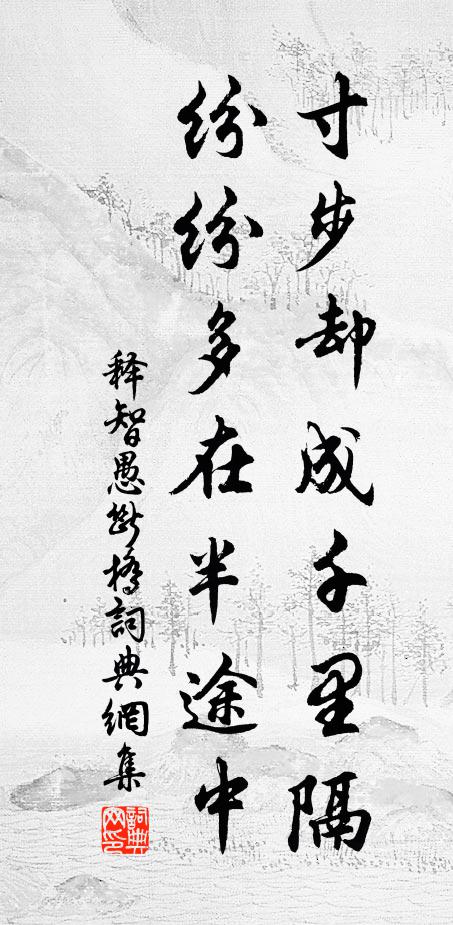 寸步却成千里隔
纷纷多在半途中
释智愚断桥詞典網集
詞典网印